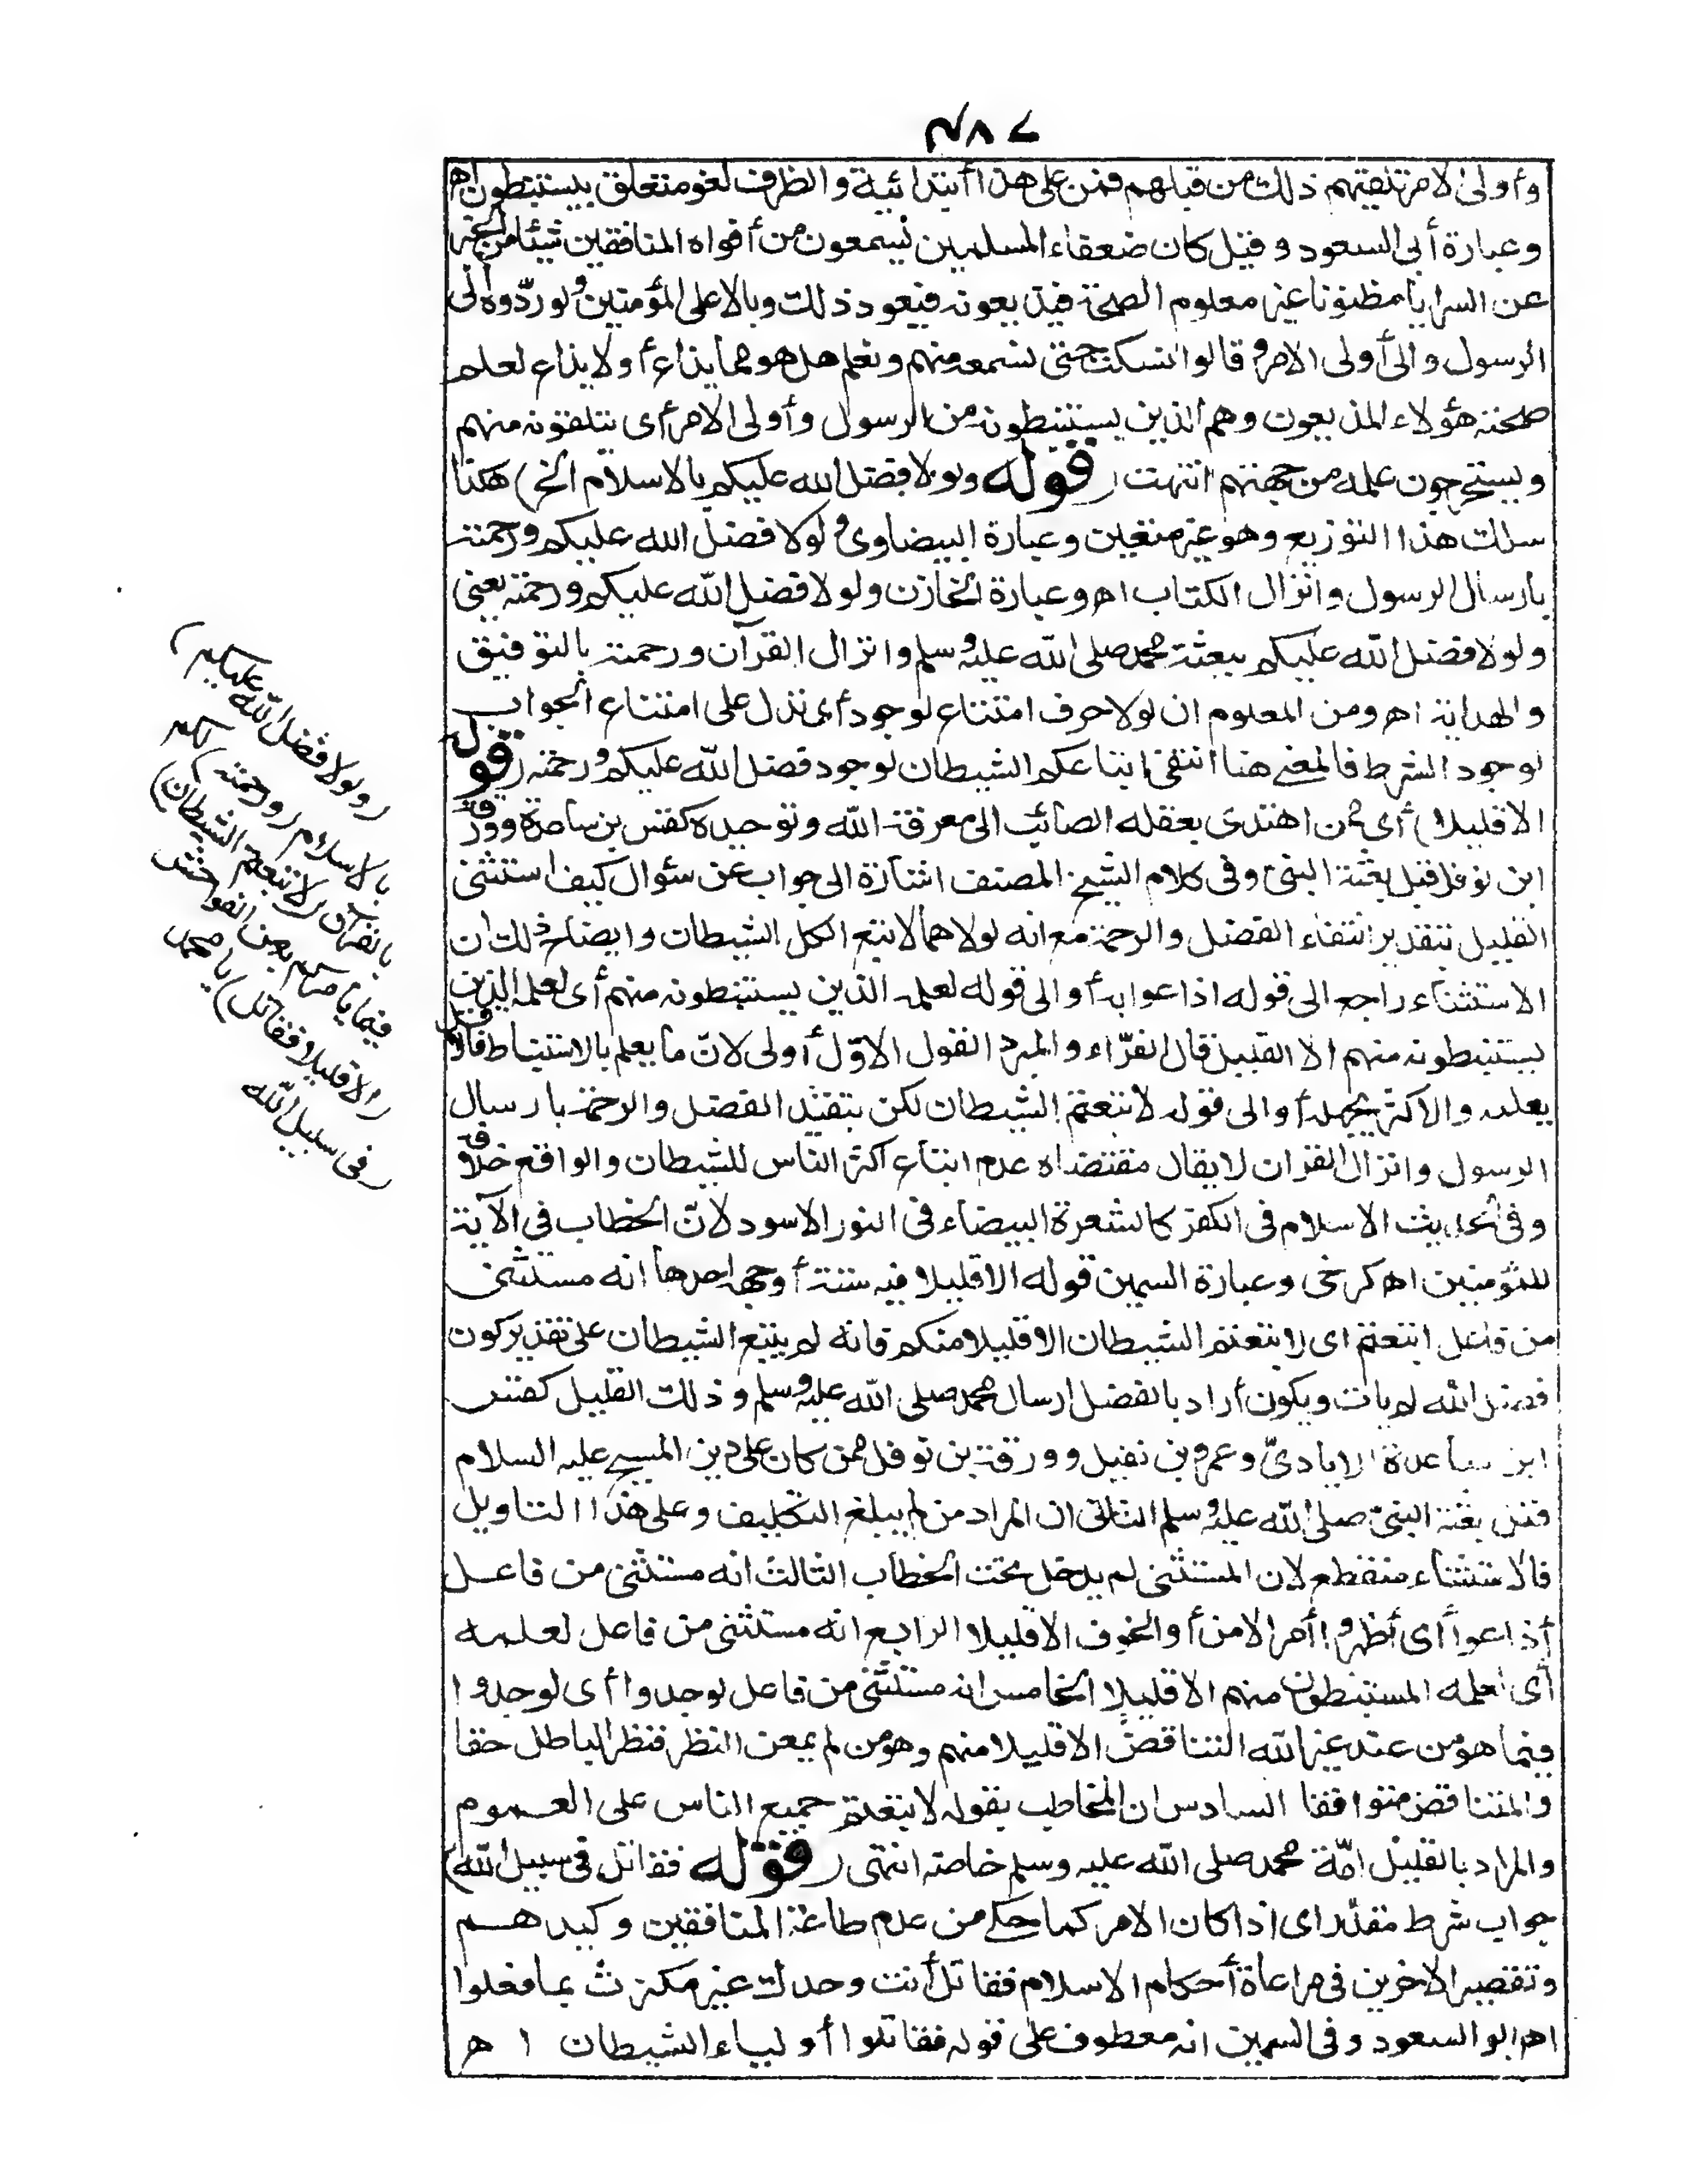 ٤٨٧
وأولى الامر تلقيتهم ذلك من قبلهم فمن على هذا ابتدائية والظرف لغو متعلق بيستنبطون اه
وعبارة أبى السعود وقيل كان ضعفاء المسلمين يسمعون من أفواه المنافقين شيئا من الخبر
عن السرايا مظنونا غير معلوم الصحة فيذيعونه فيعود ذلك وبالا على المؤمنين ولو ردّوه الى
الرسول والى أولى الامر وقالوا نسكت حتى نسمعه منهم ونعلم هل هو مما يذاع أولا يذاع لعلم
صحته هؤلاء المذيعون وهم الذين يستنبطونه من الرسول وأولى الامر أى يتلقونه منهم
ويستخرجون علمه من جهتهم انتهت (قوله ولولا فضل الله عليكم بالاسلام الخ) هكذا
سلك هذا التوزيع وهو غير متعين وعبارة البيضاوى ولولا فضل الله عليكم ورحمته
بارسال الرسول وانزال الكتاب اه وعبارة الخازن ولولا فضل الله عليكم ورحمته يعنى
ولولا فضل الله عليكم ببعثة محمد صلى الله عليه وسلم وانزال القرآن ورحمته بالتوفيق
والهداية اه ومن المعلوم ان لولا حرف امتناع لوجود أى تدل على امتناع الجواب
لوجود الشرط فالمعنى هنا انتفى اتباعكم الشيطان لوجود فضل الله عليكم ورحمته (قوله
الا قليلا) أى ممن اهتدى بعقله الصائب الى معرفة الله وتوحيده كقس بن ساعدة وورقة
ابن نوفل قبل بعثة النبىّ وفى كلام الشيخ المصنف اشارة الى جواب عن سؤال كيف استثنى
القليل بتقدير انتفاء الفضل والرحمة مع انه لولاهما لاتبع الكل الشيطان وايضاح ذلك ان
الاستثناء راجع الى قوله اذاعوا به أو الى قوله لعلمه الذين يستنبطونه منهم أى لعلمه الذين
يستنبطونه منهم الا القليل قال الفرّاء والمبرد القول الاوّل أولى لانّ ما يعلم بالاستنباط فالاقل
يعلمه والاكثر يجهله أو الى قوله لاتبعتم الشيطان لكن بتقييد الفضل والرحمة بارسال
الرسول وانزال القران لا يقال مقتضاه عدم اتباع اكثر الناس للشيطان والواقع خلافه
وفى الحديث الاسلام فى الكفر كالشعرة البيضاء فى الثور الاسود لانّ الخطاب فى الآية
للمؤمنين اه كرخى وعبارة السمين قوله الا قليلا فيه ستة أوجه احدها انه مستثنى
من فاعل اتبعتم اى لاتبعتم الشيطان الا قليلا منكم فانه لم يتبع الشيطان على تقدير كون
فضل الله لم يات ويكون أراد بالفضل ارسال محمد صلى الله عليه وسلم وذلك القليل كقس
ابن ساعدة الايادىّ وعمرو بن نفيل وورقة بن نوفل ممن كان على دين المسيح عليه السلام
قبل بعثة النبىّ صلى الله عليه وسلم الثانى ان المراد من لم يبلغ التكليف وعلى هذا التاويل
فالاستثناء منقطع لان المستثنى لم يدخل تحت الخطاب الثالث انه مستثنى من فاعل
أذاعوا أى أظهروا أمر الامن أو الخوف الا قليلا الرابع انه مستثنى من فاعل لعلمه
أى لعلمه المستنبطون منهم الا قليلا الخامس انه مستثنى من فاعل لوجدوا أى لوجدوا
فيما هو من عند غير الله التناقض الا قليلا منهم وهو من لم يمعن النظر فيظن الباطل حقا
والمتناقض متوافقا السادس ان المخاطب بقوله لاتبعتم جميع الناس على العموم
والمراد بالقليل امّة محمد صلى الله عليه وسلم خاصة انتهى (قوله فقاتل فى سبيل الله)
جواب شرط مقدّر اى اذا كان الامر كما حكى من عدم طاعة المنافقين وكيدهم
وتقصير الاخرين فى مراعاة أحكام الاسلام فقاتل أنت وحدك غير مكترث بما فعلوا
اه ابو السعود وفى السمين انه معطوف على قوله فقاتلوا أولياء الشيطان اه
(ولولا فضل الله عليكم)
بالاسلام (ورحمته) لكم
بالقرآن (لاتبعتم الشيطان)
فيما يأمركم به من الفواحش
(الا قليلا فقاتل) يا محمد
(فى سبيل الله